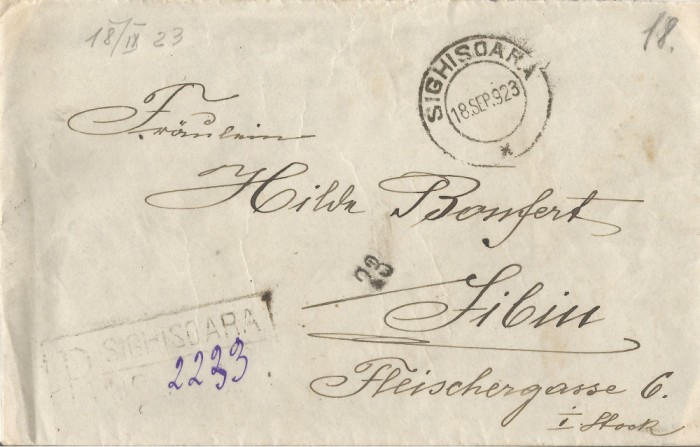 18/IX 23
18.
SIGHISOARA
18.SEP.923
Fräulein
Hilde Bonfert
23
Sibiu
R SIGHISOARA
2233
Fleischergasse 6.
I Stock